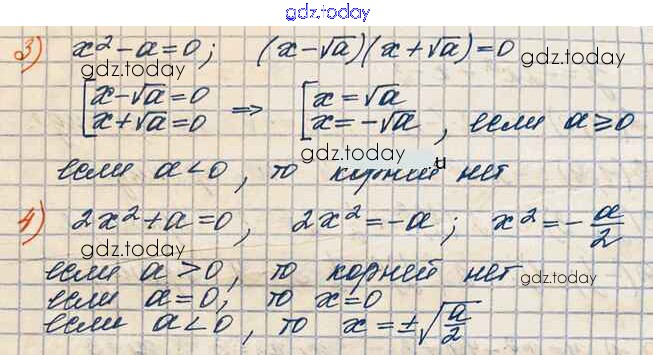 gdz.today
3) x² - a = 0; (x - √a)(x + √a) = 0
gdz.today gdz.today
[x - √a = 0 ⇒ [x = √a
[x + √a = 0 [x = -√a, если a ≥ 0
gdz.today .u
если a < 0, то корней нет
4) 2x² + a = 0, 2x² = -a; x² = -a/2
gdz.today
если a > 0, то корней нет
gdz.today
если a = 0; то x = 0
если a < 0, то x = ±√(a/2)